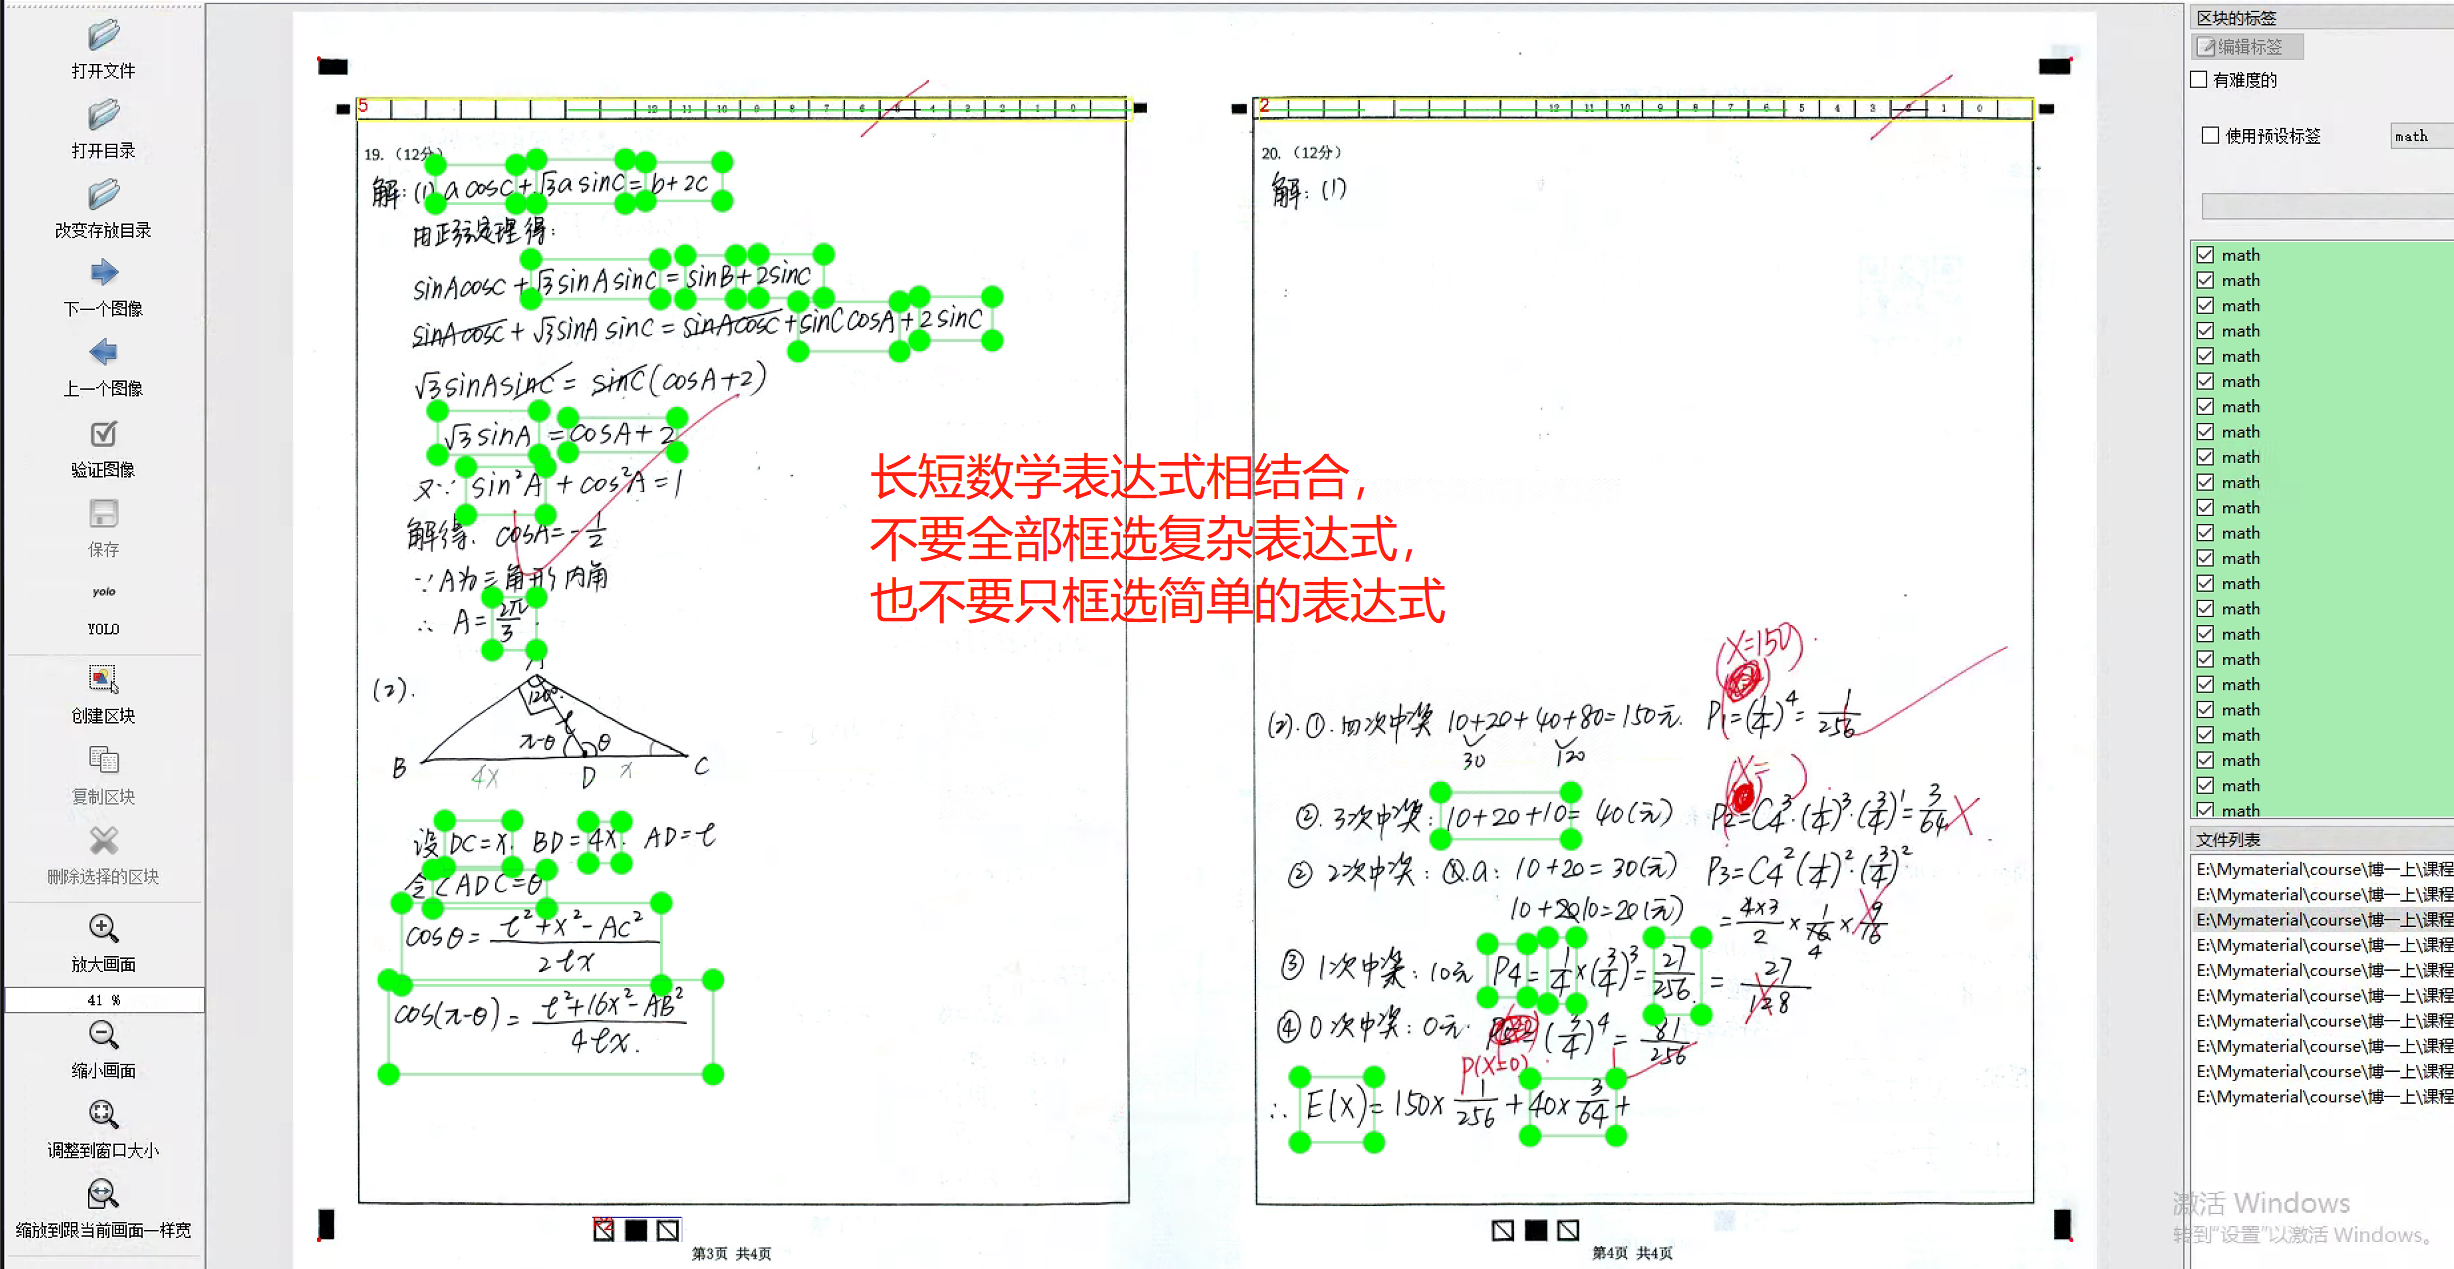 打开文件
打开目录
改变存放目录
下一个图像
上一个图像
验证图像
保存
yolo
YOLO
创建区块
复制区块
删除选择的区块
放大画面
41 %
缩小画面
调整到窗口大小
缩放到跟当前画面一样宽
5
12 11 10 9 8 7 6 5 4 3 2 1 0
19. (12分)
解: (1) a cosC + √3 a sinC = b + 2c
由正弦定理得:
sinAcosC + √3 sinA sinC = sinB + 2sinC
sinAcosC + √3 sinA sinC = sinAcosC + sinC cosA + 2 sinC
√3 sinA sinC = sinC (cosA + 2)
√3 sinA = cosA + 2
又∵ sin²A + cos²A = 1
解得. cosA = -1/2
∵A为三角形内角
∴ A = 2π/3.
(2).
120°
t
π-θ θ
B 4x D x C
设 DC = x. BD = 4x. AD = t
令∠ADC = θ
cosθ = (t² + x² - AC²)/(2tx)
cos(π-θ) = (t² + 16x² - AB²)/(4tx).
第3页 共4页
长短数学表达式相结合，
不要全部框选复杂表达式，
也不要只框选简单的表达式
2
12 11 10 9 8 7 6 5 4 3 2 1 0
20. (12分)
解: (1)
(X=150)
(2). ①. 四次中奖 10+20+40+80=150元. P1 = (1/4)⁴ = 1/256
30 120
(X= )
②. 3次中奖: 10+20+10= 40(元) P2 = C4³·(1/4)³·(3/4)¹ = 3/64
② 2次中奖: a: 10+20 = 30(元) P3 = C4²(1/4)²·(3/4)²
10+10=20(元) = 4×3/2 × 1/16 × 9/16
4
③ 1次中奖: 10元 P4 = 1/4 × (3/4)³ = 27/256. = 27/128
④ 0次中奖: 0元. = (3/4)⁴ = 81/256
P(X=0)
∴ E(X) = 150× 1/256 + 40× 3/64 +
第4页 共4页
区块的标签
编辑标签
有难度的
使用预设标签 math
math
math
math
math
math
math
math
math
math
math
math
math
math
math
math
math
math
math
math
math
math
math
math
文件列表
E:\Mymaterial\course\博一上\课程
E:\Mymaterial\course\博一上\课程
E:\Mymaterial\course\博一上\课程
E:\Mymaterial\course\博一上\课程
E:\Mymaterial\course\博一上\课程
E:\Mymaterial\course\博一上\课程
E:\Mymaterial\course\博一上\课程
E:\Mymaterial\course\博一上\课程
E:\Mymaterial\course\博一上\课程
E:\Mymaterial\course\博一上\课程
激活 Windows
转到"设置"以激活 Windows。